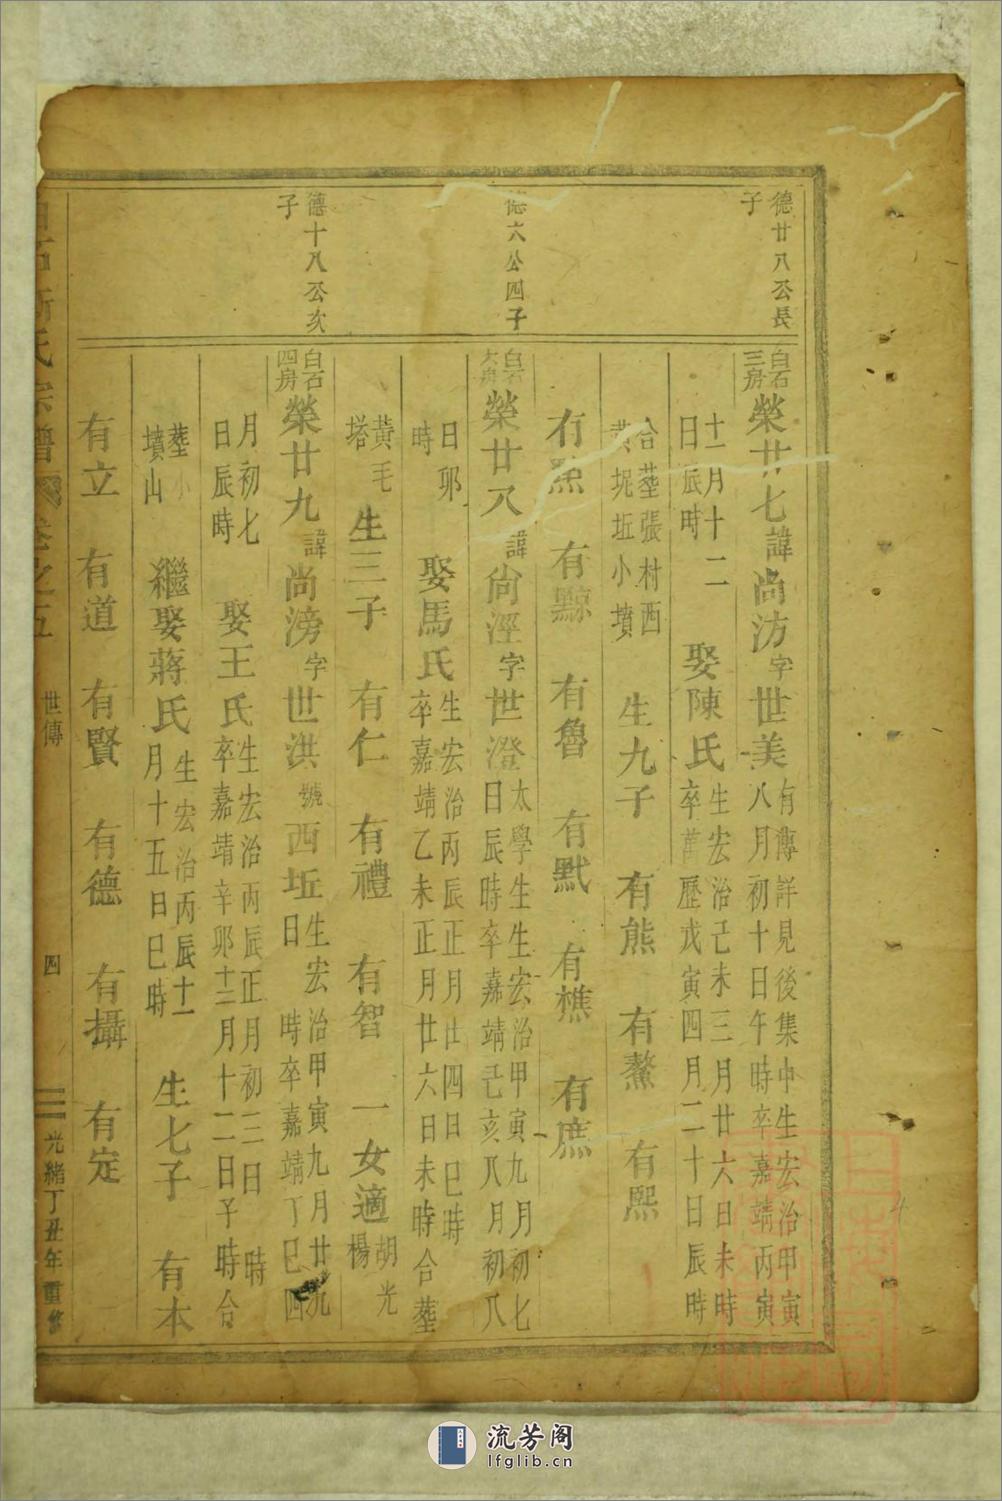 德廿八公長
子
德六公四子
德十八公次
子
白石
三房
榮廿七諱尚汸字世美
有傳詳見後集中生宏治甲寅
八月初十日午時卒嘉靖丙寅
十一月十二
日辰時
娶陳氏
生宏治己未三月廿六日未時
卒萬歷戊寅四月二十日辰時
合塟張村西
黄坭坵小墳
生九子 有熊 有鰲 有熙
有㷱 有黥 有魯 有默 有樵 有庶
白石
大房
榮廿八諱尚涇字世澄
太學生生宏治甲寅九月初七
日辰時卒嘉靖己亥八月初八
日卯
時
娶馬氏
生宏治丙辰正月廿四日巳時
卒嘉靖乙未正月廿六日未時合塟
黃毛
塔
生三子 有仁 有禮 有智 一女適
胡光
楊
白石
四房
榮廿九諱尚滂字世洪號西坵
生宏治甲寅九月廿九
日 時卒嘉靖丁巳四
月初七
日辰時
娶王氏
生宏治丙辰正月初三日 時
卒嘉靖辛卯十二月十二日子時合
塟小
墳山
繼娶蔣氏
生宏治丙辰十一
月十五日巳時
生七子 有本
有立 有道 有賢 有德 有攝 有定
白石 氏宗譜 卷之五 世傳 四 光緒丁丑年重修
流芳阁
lfglib.cn